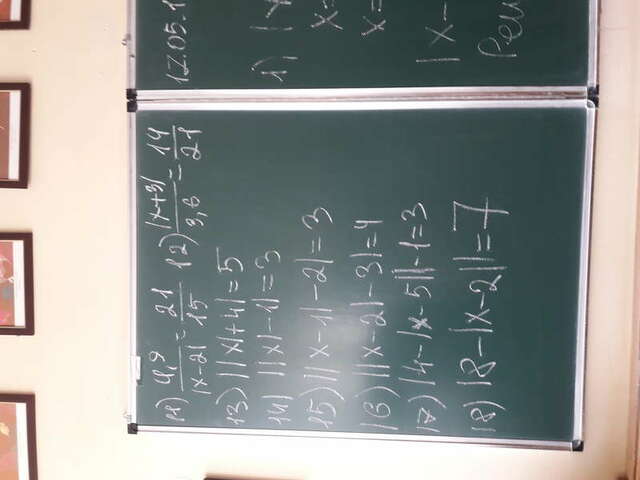 11) 4,9/|x-2| = 21/15 12) |x+3|/3,6 = 14/21
13) ||x|+4|=5
14) ||x|-1|=3
15) ||x-1|-2|=3
16) ||x-2|-3|=4
17) |4-|x-5||-1=3
18) |8-|x-2||=7
17.05.1
1) |x
x=
x=
|x-
Реш